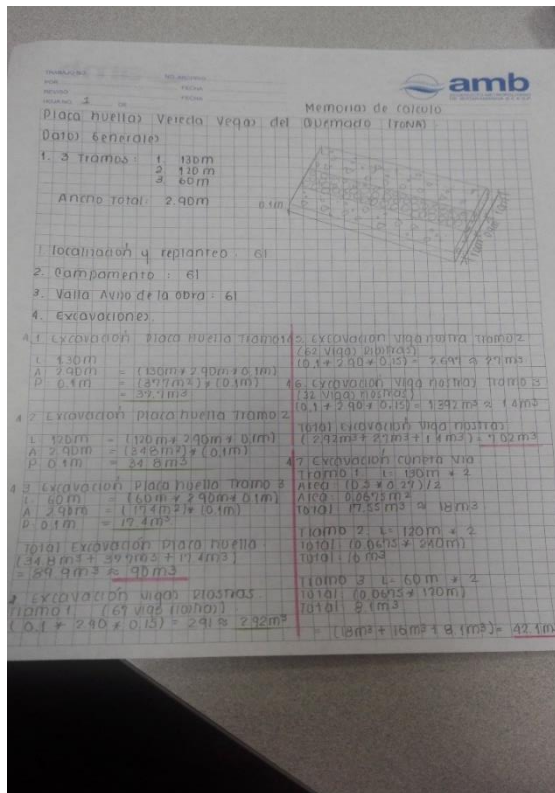 amb
Memorias de calculo
Placa huellas Vereda Vegas del Quemado (TONA)
Datos Generales
1. 3 Tramos: 1. 130m
2. 120m
3. 60m
Ancho Total: 2.90m
0.1m
1. localización y replanteo: 61
2. Campamento: 61
3. Valla Aviso de la obra: 61
4. Excavaciones.
4.1 Excavación placa huella Tramo 1
L 130m
A 2.90m = (130m * 2.90m * 0.1m)
P 0.1m = (377m²) * (0.1m)
= 37.7m³
4.2 Excavación Placa huella Tramo 2
L 120m = (120m * 2.90m * 0.1m)
A 2.90m = (348m²) * (0.1m)
P 0.1m = 34.8m³
4.3 Excavación placa huella Tramo 3
L 60m = (60m * 2.90m * 0.1m)
A 2.90m = (174m²) * (0.1m)
P 0.1m = 17.4m³
Total Excavación placa huella
(34.8m³ + 37.7m³ + 17.4m³)
= 89.9m³ ≈ 90m³
Excavación vigas
Tramo 1 (67 vigas
(0.1 * 2.90 * 0.15) = 2.91 ≈ 2.92m³
5. Excavación viga Tramo 2
(62 vigas
(0.1 * 2.90 * 0.15) = 2.697 ≈ 2.7m³
4.6 Excavación vigas Tramo 3
(32 vigas
(0.1 * 2.90 * 0.15) = 1.392m³ ≈ 1.4m³
Total Excavación viga
(2.92m³ + 2.7m³ + 1.4m³) = 7.02m³
4.7 Excavación cuneta Vía
Tramo 1: L = 130m * 2
Area (0.5 * 0.27)/2
Area 0.0675m²
Total 17.55m³ ≈ 18m³
Tramo 2: L = 120m * 2
Total: (0.0675 * 240m)
Total: 16m³
Tramo 3 L = 60m * 2
Total: (0.0675 * 120m)
Total: 8.1m³
= (18m³ + 16m³ + 8.1m³) = 42.1m